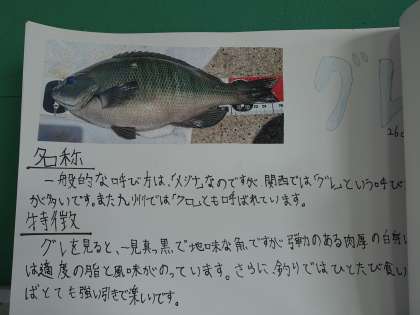 グレ
26c
名称
一般的な呼び方は、「メジナ」なのですが、関西では「グレ」という呼び
が多いです。また九州では「クロ」とも呼ばれています。
特徴
グレを見ると、一見真っ黒で地味な魚ですが弾力のある肉厚の白身
は適度の脂と風味がのっています。さらに、釣りではひとたび食い
ばとても強い引きで楽しいです。